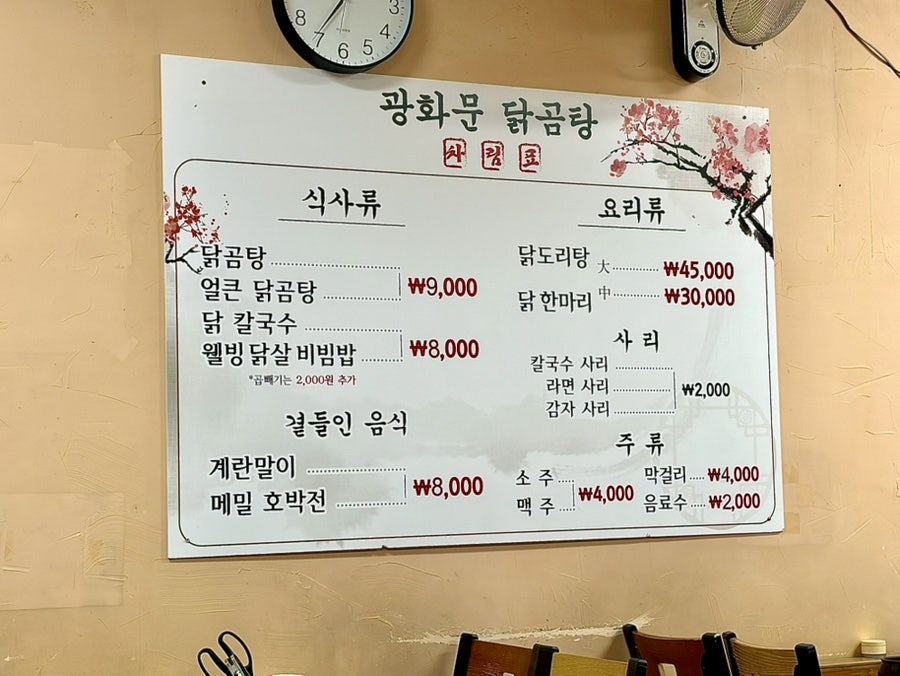 8 7 6 5 4 3
광화문 닭곰탕
차림표
식사류
닭곰탕
얼큰 닭곰탕
₩9,000
닭 칼국수
웰빙 닭살 비빔밥
₩8,000
*곱빼기는 2,000원 추가
곁들인 음식
계란말이
메밀 호박전
₩8,000
요리류
닭도리탕
닭 한마리
大 ₩45,000
中 ₩30,000
사리
칼국수 사리
라면 사리
감자 사리
₩2,000
주류
소주
맥주
₩4,000
막걸리 ₩4,000
음료수 ₩2,000